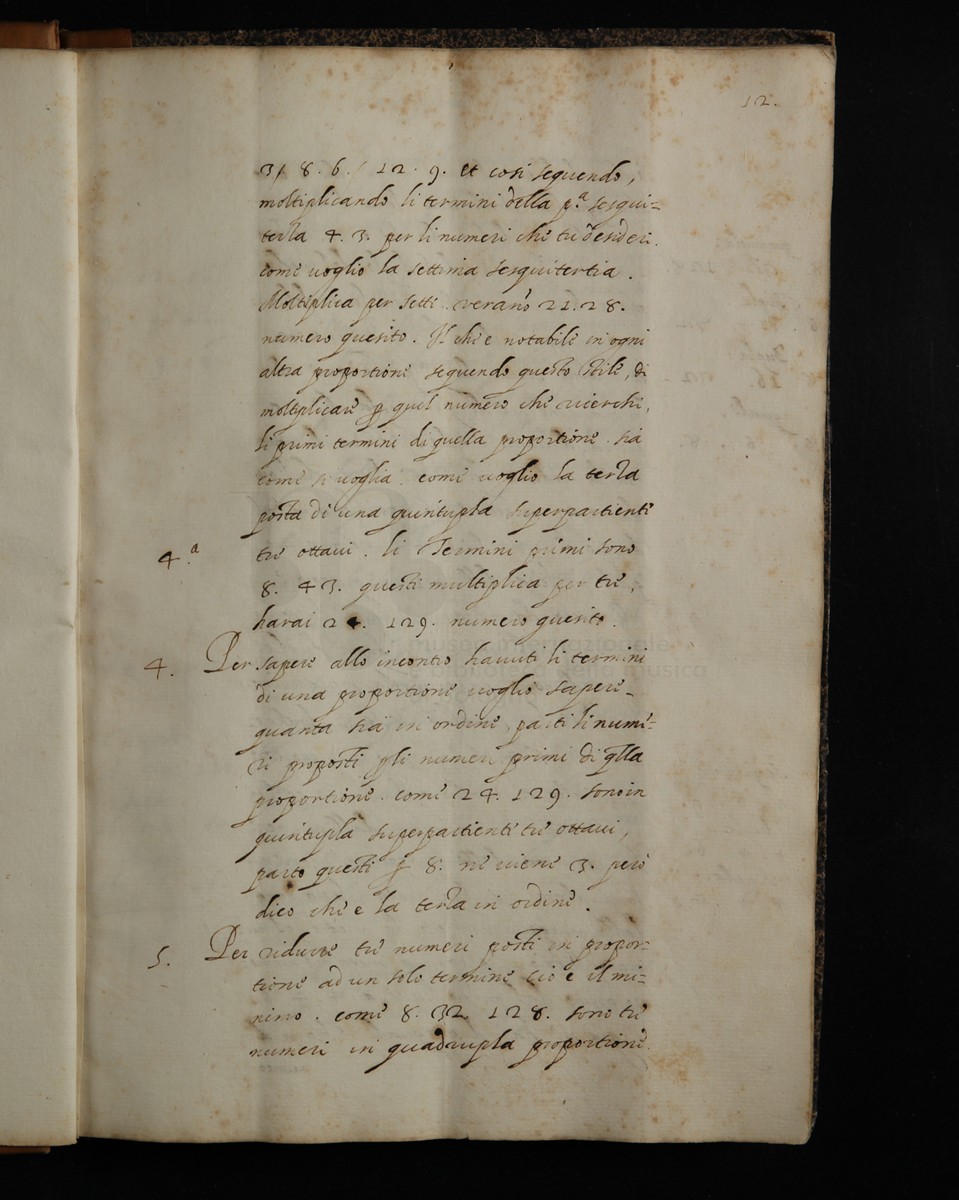 12.
3/ 8. 6. / 12. 9. et cosi seguendo,
moltiplicando li termini della p.a sesqui=
terza 4. 3. per li numeri che tu desideri.
come voglio la settima sesquitertia.
Moltiplica per sette verano 21. 28.
numero quesito. Il che e notabile in ogni
altra proportione seguendo questo stile, di
moltiplicare p quel numero che ricerchi,
li primi termini di quella proportione sia
come si voglia. come voglio la terza
posta di una quintupla superpartiente
4.a tre ottavi. li Termini primi sono
8. 43. questi multiplica per tre,
harai 24. 129. numero quesito.
4. Per sapere allo incontro havuti li termini
di una proportione voglio sapere
quanta sia in ordine, parti li nume=
ri proposti p li numeri primi di qlla
proportione. come 24. 129. sono in
quintupla superpartiente tre ottavi,
parto questi p 8. ne viene 3. però
dico che e la terza in ordine.
5. Per ridurre tre numeri posti in propor=
tione ad un solo termine cio e il mi=
nimo. come 8. 32. 128. sono tre
numeri in quadrupla proportione.